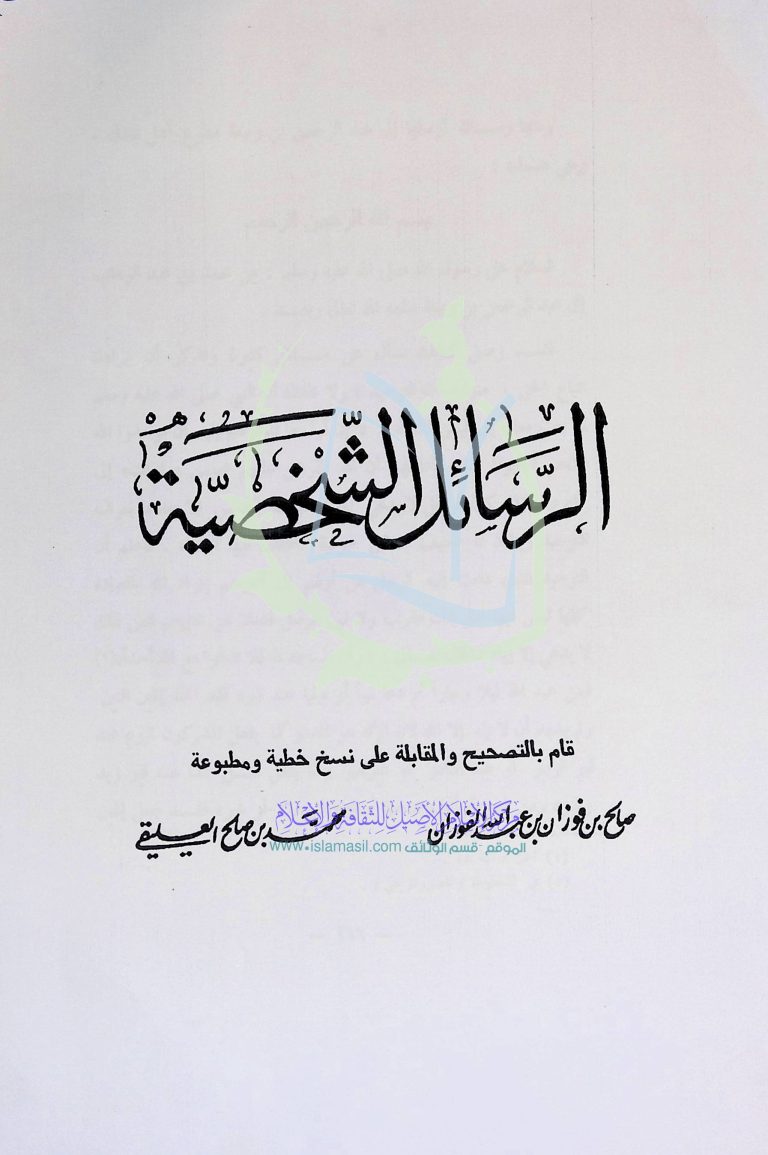 الرسائل الشخصية
قام بالتصحيح والمقابلة على نسخ خطية ومطبوعة
صالح بن فوزان بن عبد الله الفوزان محمد بن صالح العيليقي
مركز الإسلام الأصيل للثقافة والإعلام
الموقع - قسم الوثائق www.islamasil.com